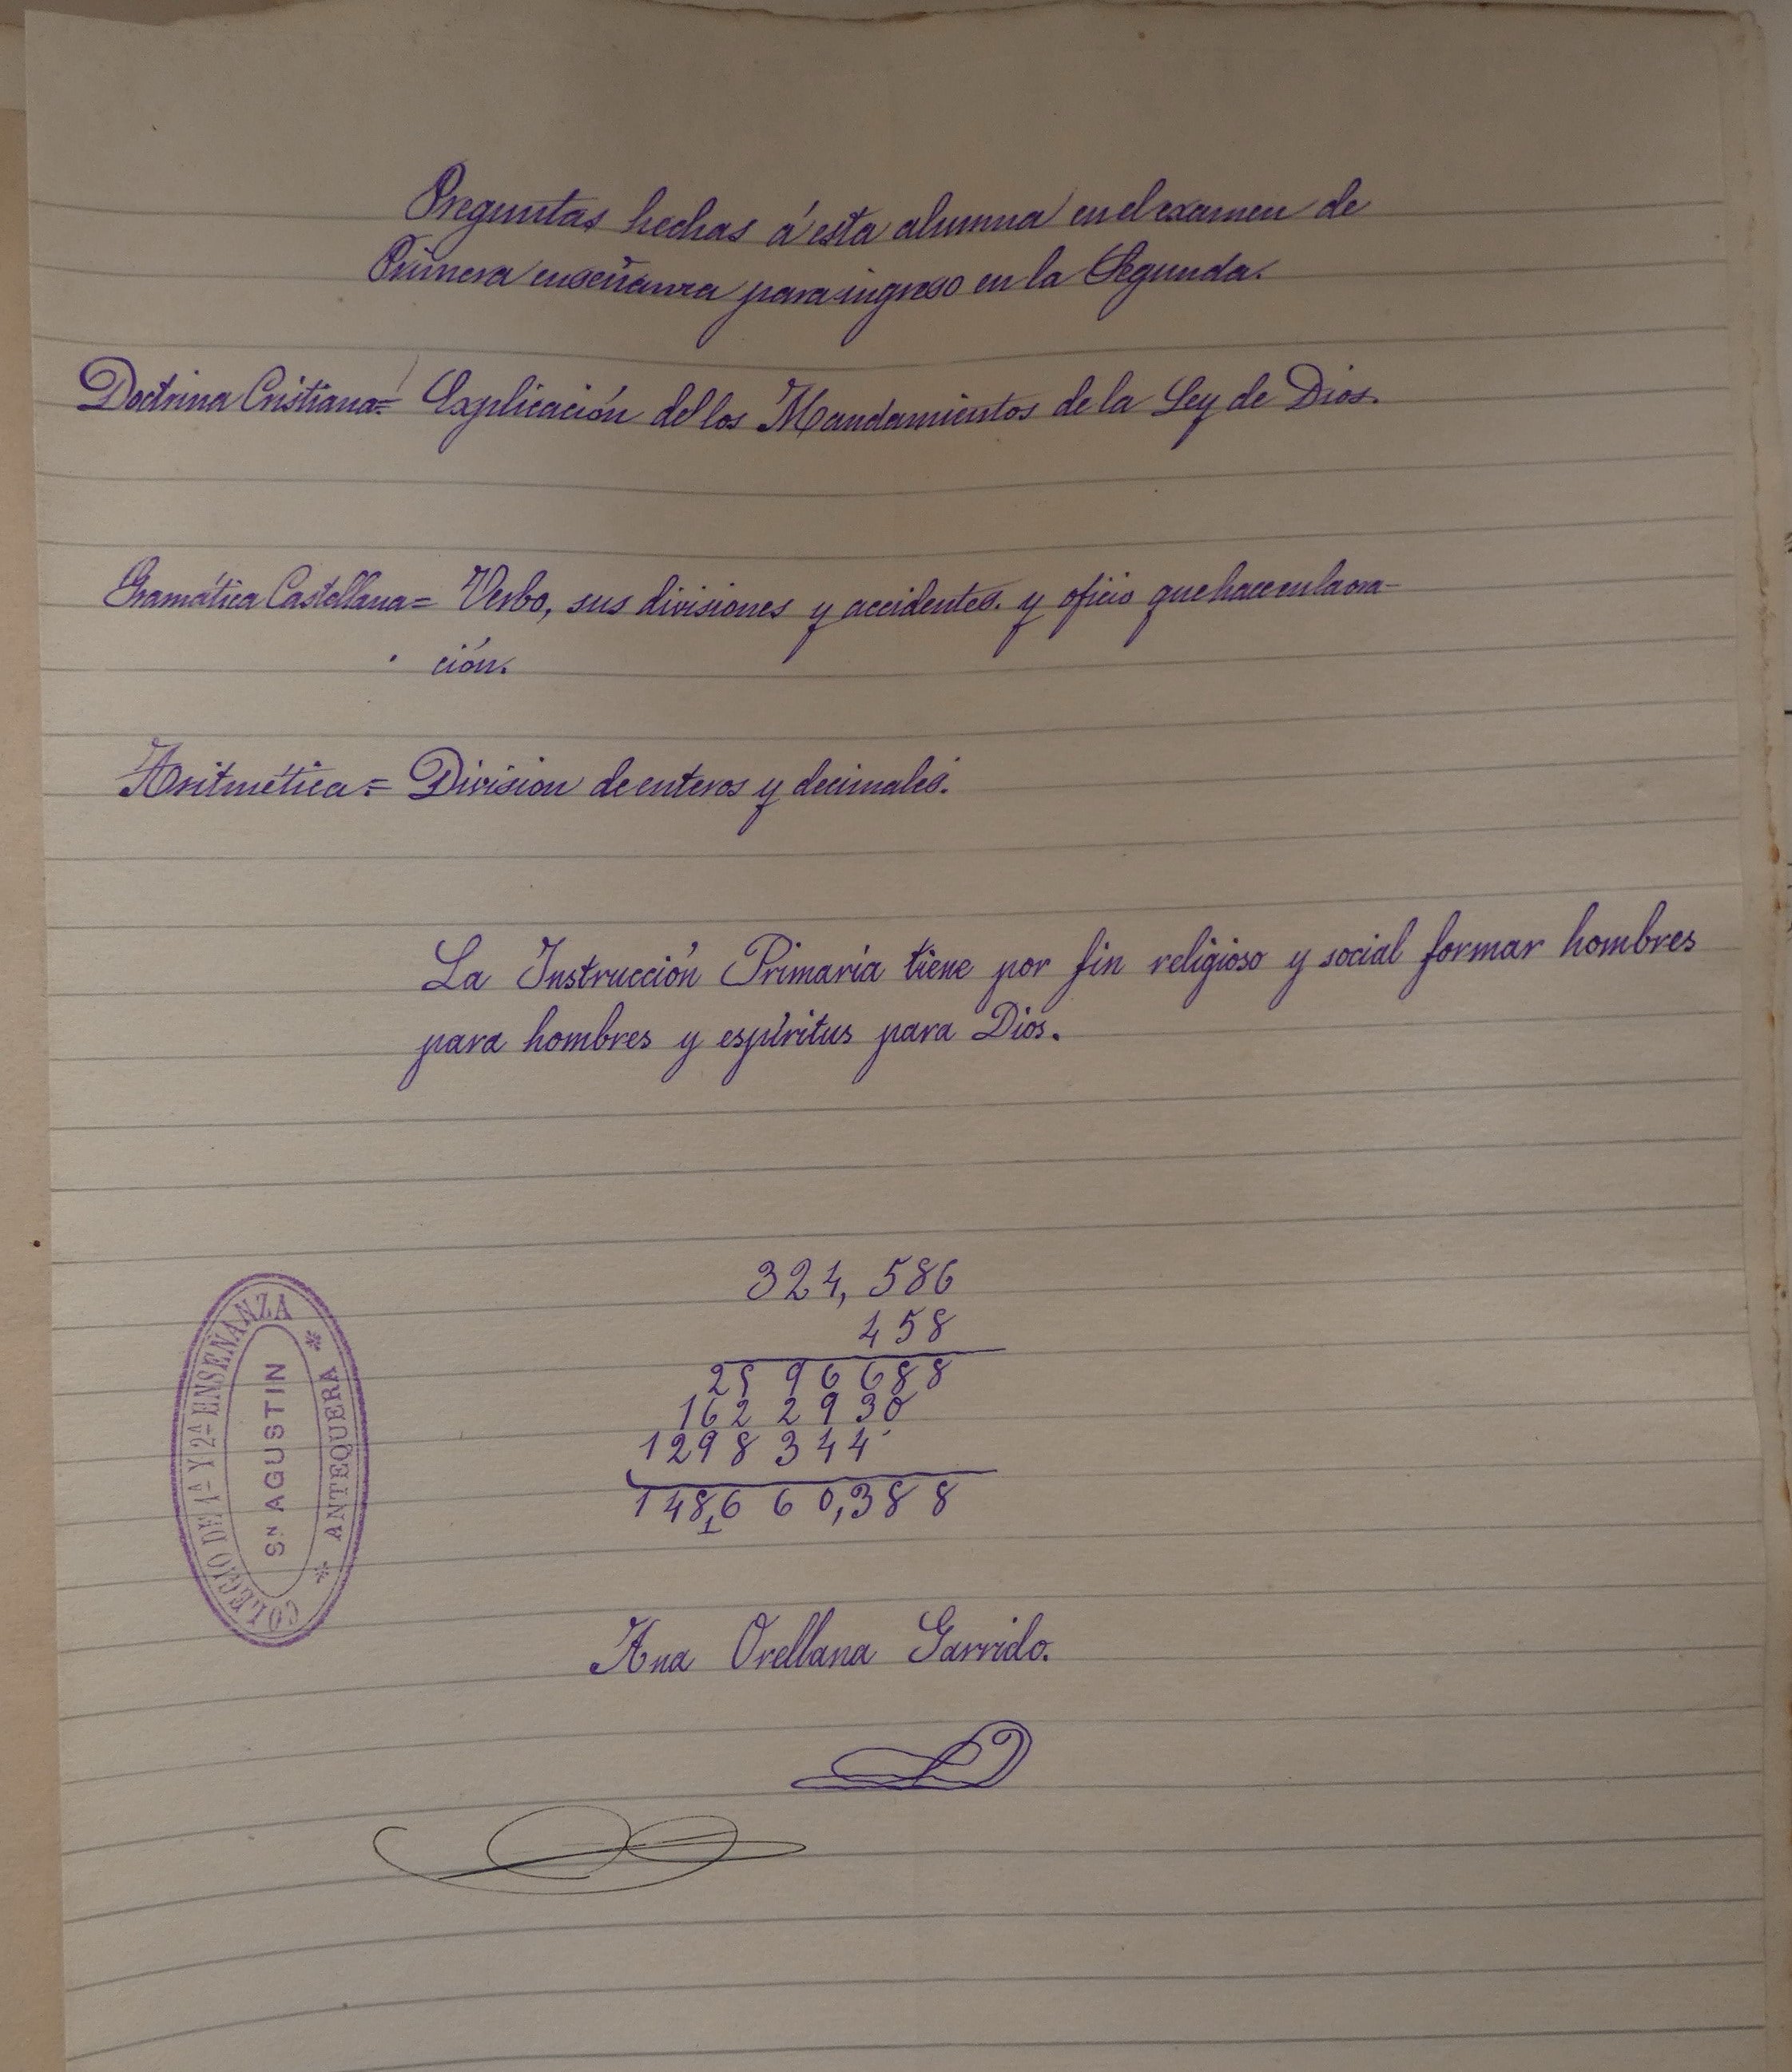 Preguntas hechas á esta alumna en el examen de
Primera enseñanza para ingreso en la Segunda.
Doctrina Cristiana= Explicación de los Mandamientos de la Ley de Dios.
Gramática Castellana= Verbo, sus divisiones y accidentes. y oficio que hace en la ora-
ción.
Aritmética= Division de enteros y decimales.
La Instrucción Primaria tiene por fin religioso y social formar hombres
para hombres y espíritus para Dios.
324,586
458
2596688
1622930
1298344
148,660,388
1
COLEGIO DE 1ª Y 2ª ENSEÑANZA
Sⁿ AGUSTIN
* ANTEQUERA *
Ana Orellana Garrido.